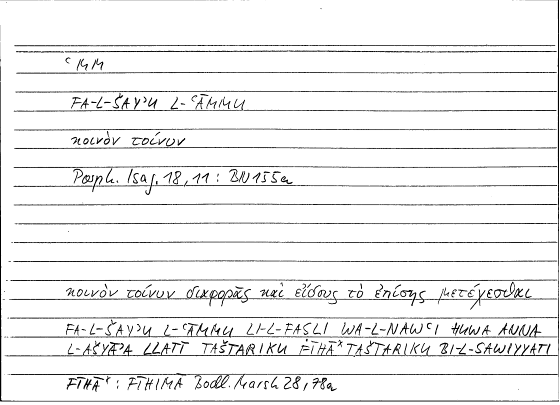 ʿMM
FA-L-ŠAYʾU L-ʿĀMMU
κοινὸν τοίνυν
Porph. Isag. 18, 11 : BN 155a
κοινὸν τοίνυν διαφορᾶς καὶ εἴδους τὸ ἐπίσης μετέχεσθαι
FA-L-ŠAYʾU L-ʿĀMMU LI-L-FAṢLI WA-L-NAWʿI HUWA ANNA
L-AŠYĀʾA LLATĪ TAŠTARIKU FĪHĀ* TAŠTARIKU BI-L-SAWIYYATI
FĪHĀ* : FĪHIMĀ Bodl. Marsh 28, 78a